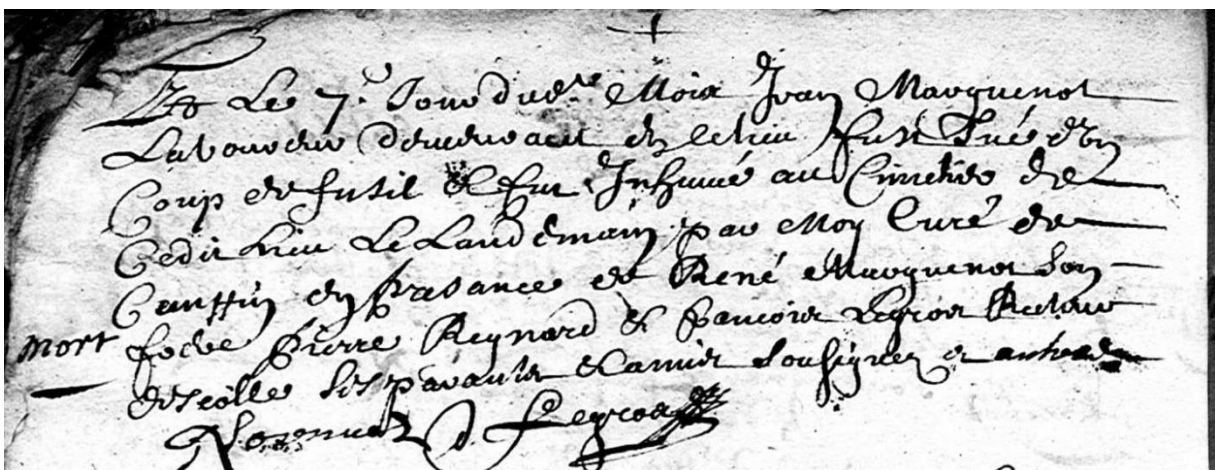 Le 7e Jour dudt Mois Jean Marguenot
Laboureur demeurant en ce lieu fust tué d'un
Coup de fusil & fut Inhumé au Cimetiere de
Cedit Lieu Le Landemain par Moy Curé de
en presance de René Marguenot Son
frere Pierre Regnard & francois Legros Recteur
descolle ses paranter & amis Sousignez
Legros
Mort